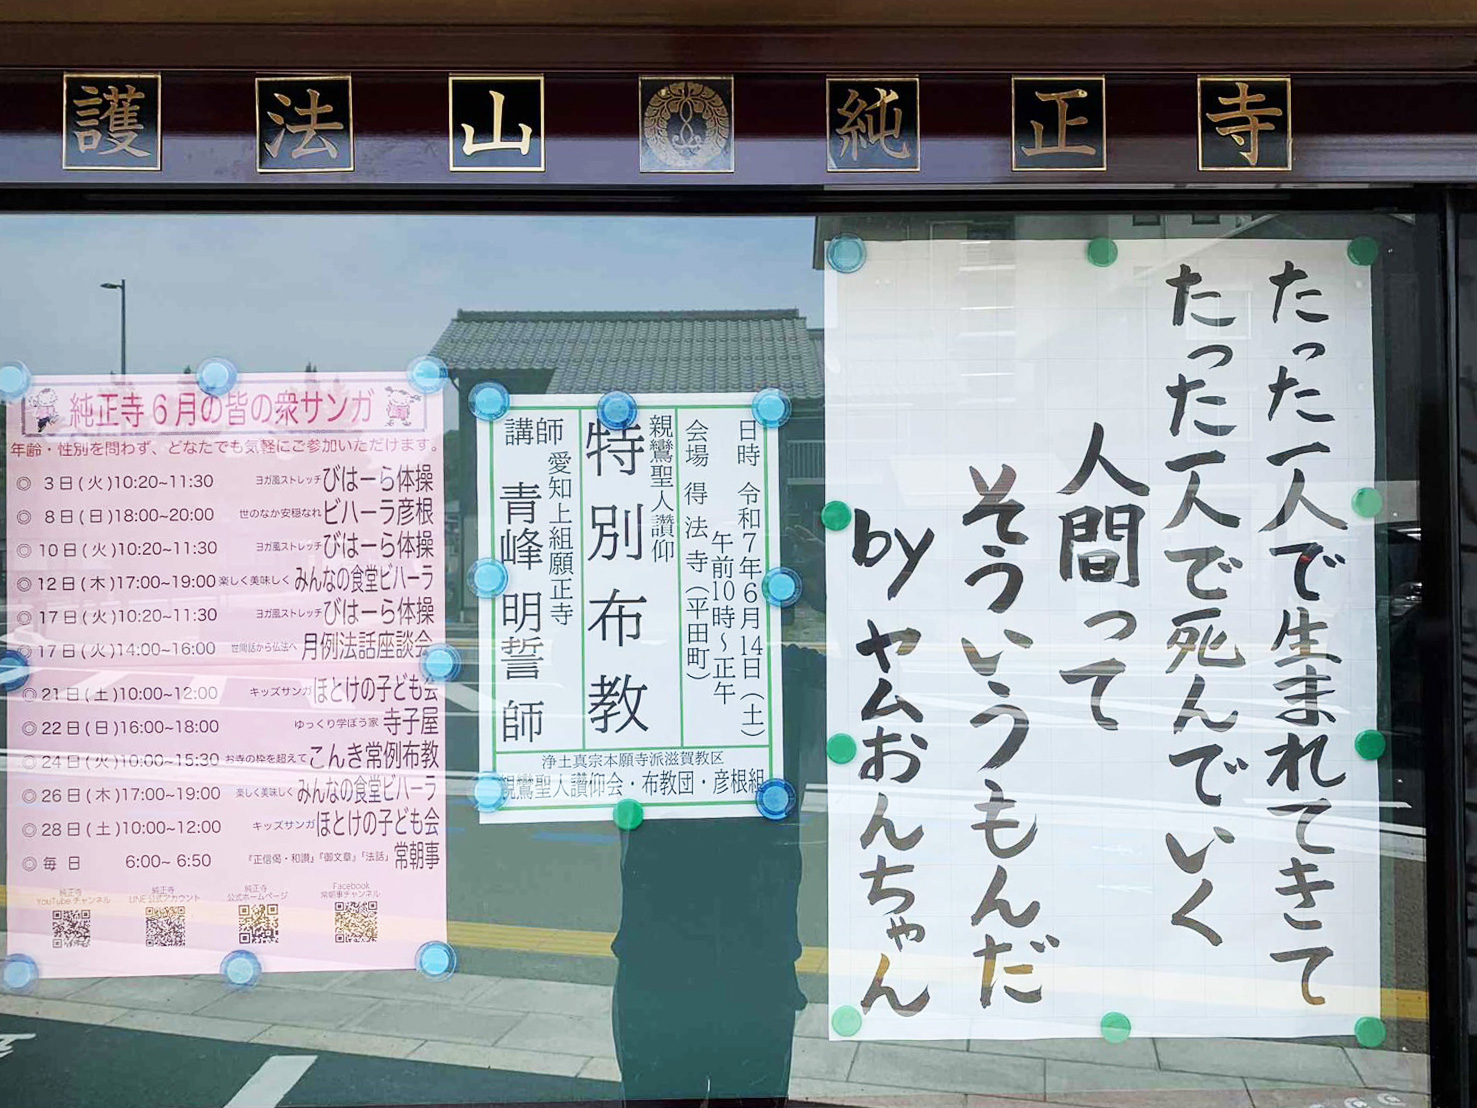 護法山 純正寺
純正寺6月の皆の衆サンガ
年齢・性別を問わず、どなたでも気軽にご参加いただけます。
◎ 3日(火)10:20~11:30 ヨガ風ストレッチ びはーら体操
◎ 8日(日)18:00~20:00 世のなか安穏なれ ビハーラ彦根
◎ 10日(火)10:20~11:30 ヨガ風ストレッチ びはーら体操
◎ 12日(木)17:00~19:00 楽しく美味しく みんなの食堂ビハーラ
◎ 17日(火)10:20~11:30 ヨガ風ストレッチ びはーら体操
◎ 17日(火)14:00~16:00 世間話から仏法へ 月例法話座談会
◎ 21日(土)10:00~12:00 キッズサンガ ほとけの子ども会
◎ 22日(日)16:00~18:00 ゆっくり学ぼう家 寺子屋
◎ 24日(火)10:00~15:30 お寺の枠を超えて こんき常例布教
◎ 26日(木)17:00~19:00 楽しく美味しく みんなの食堂ビハーラ
◎ 28日(土)10:00~12:00 キッズサンガ ほとけの子ども会
◎ 毎 日 6:00~ 6:50 『正信偈・和讃』『御文章』「法話」 常朝事
純正寺
YouTube チャンネル
純正寺
LINE 公式アカウント
純正寺
公式ホームページ
Facebook
常朝事チャンネル
日時 令和7年6月14日(土)
午前10時~正午
会場 得法寺(平田町)
親鸞聖人讃仰
特別布教
講師 愛知上組願正寺
青峰 明誓 師
浄土真宗本願寺派滋賀教区
親鸞聖人讃仰会・布教団・彦根組
たった一人で生まれてきて
たった一人で死んでいく
人間って
そういうもんだ
by ヤムおんちゃん